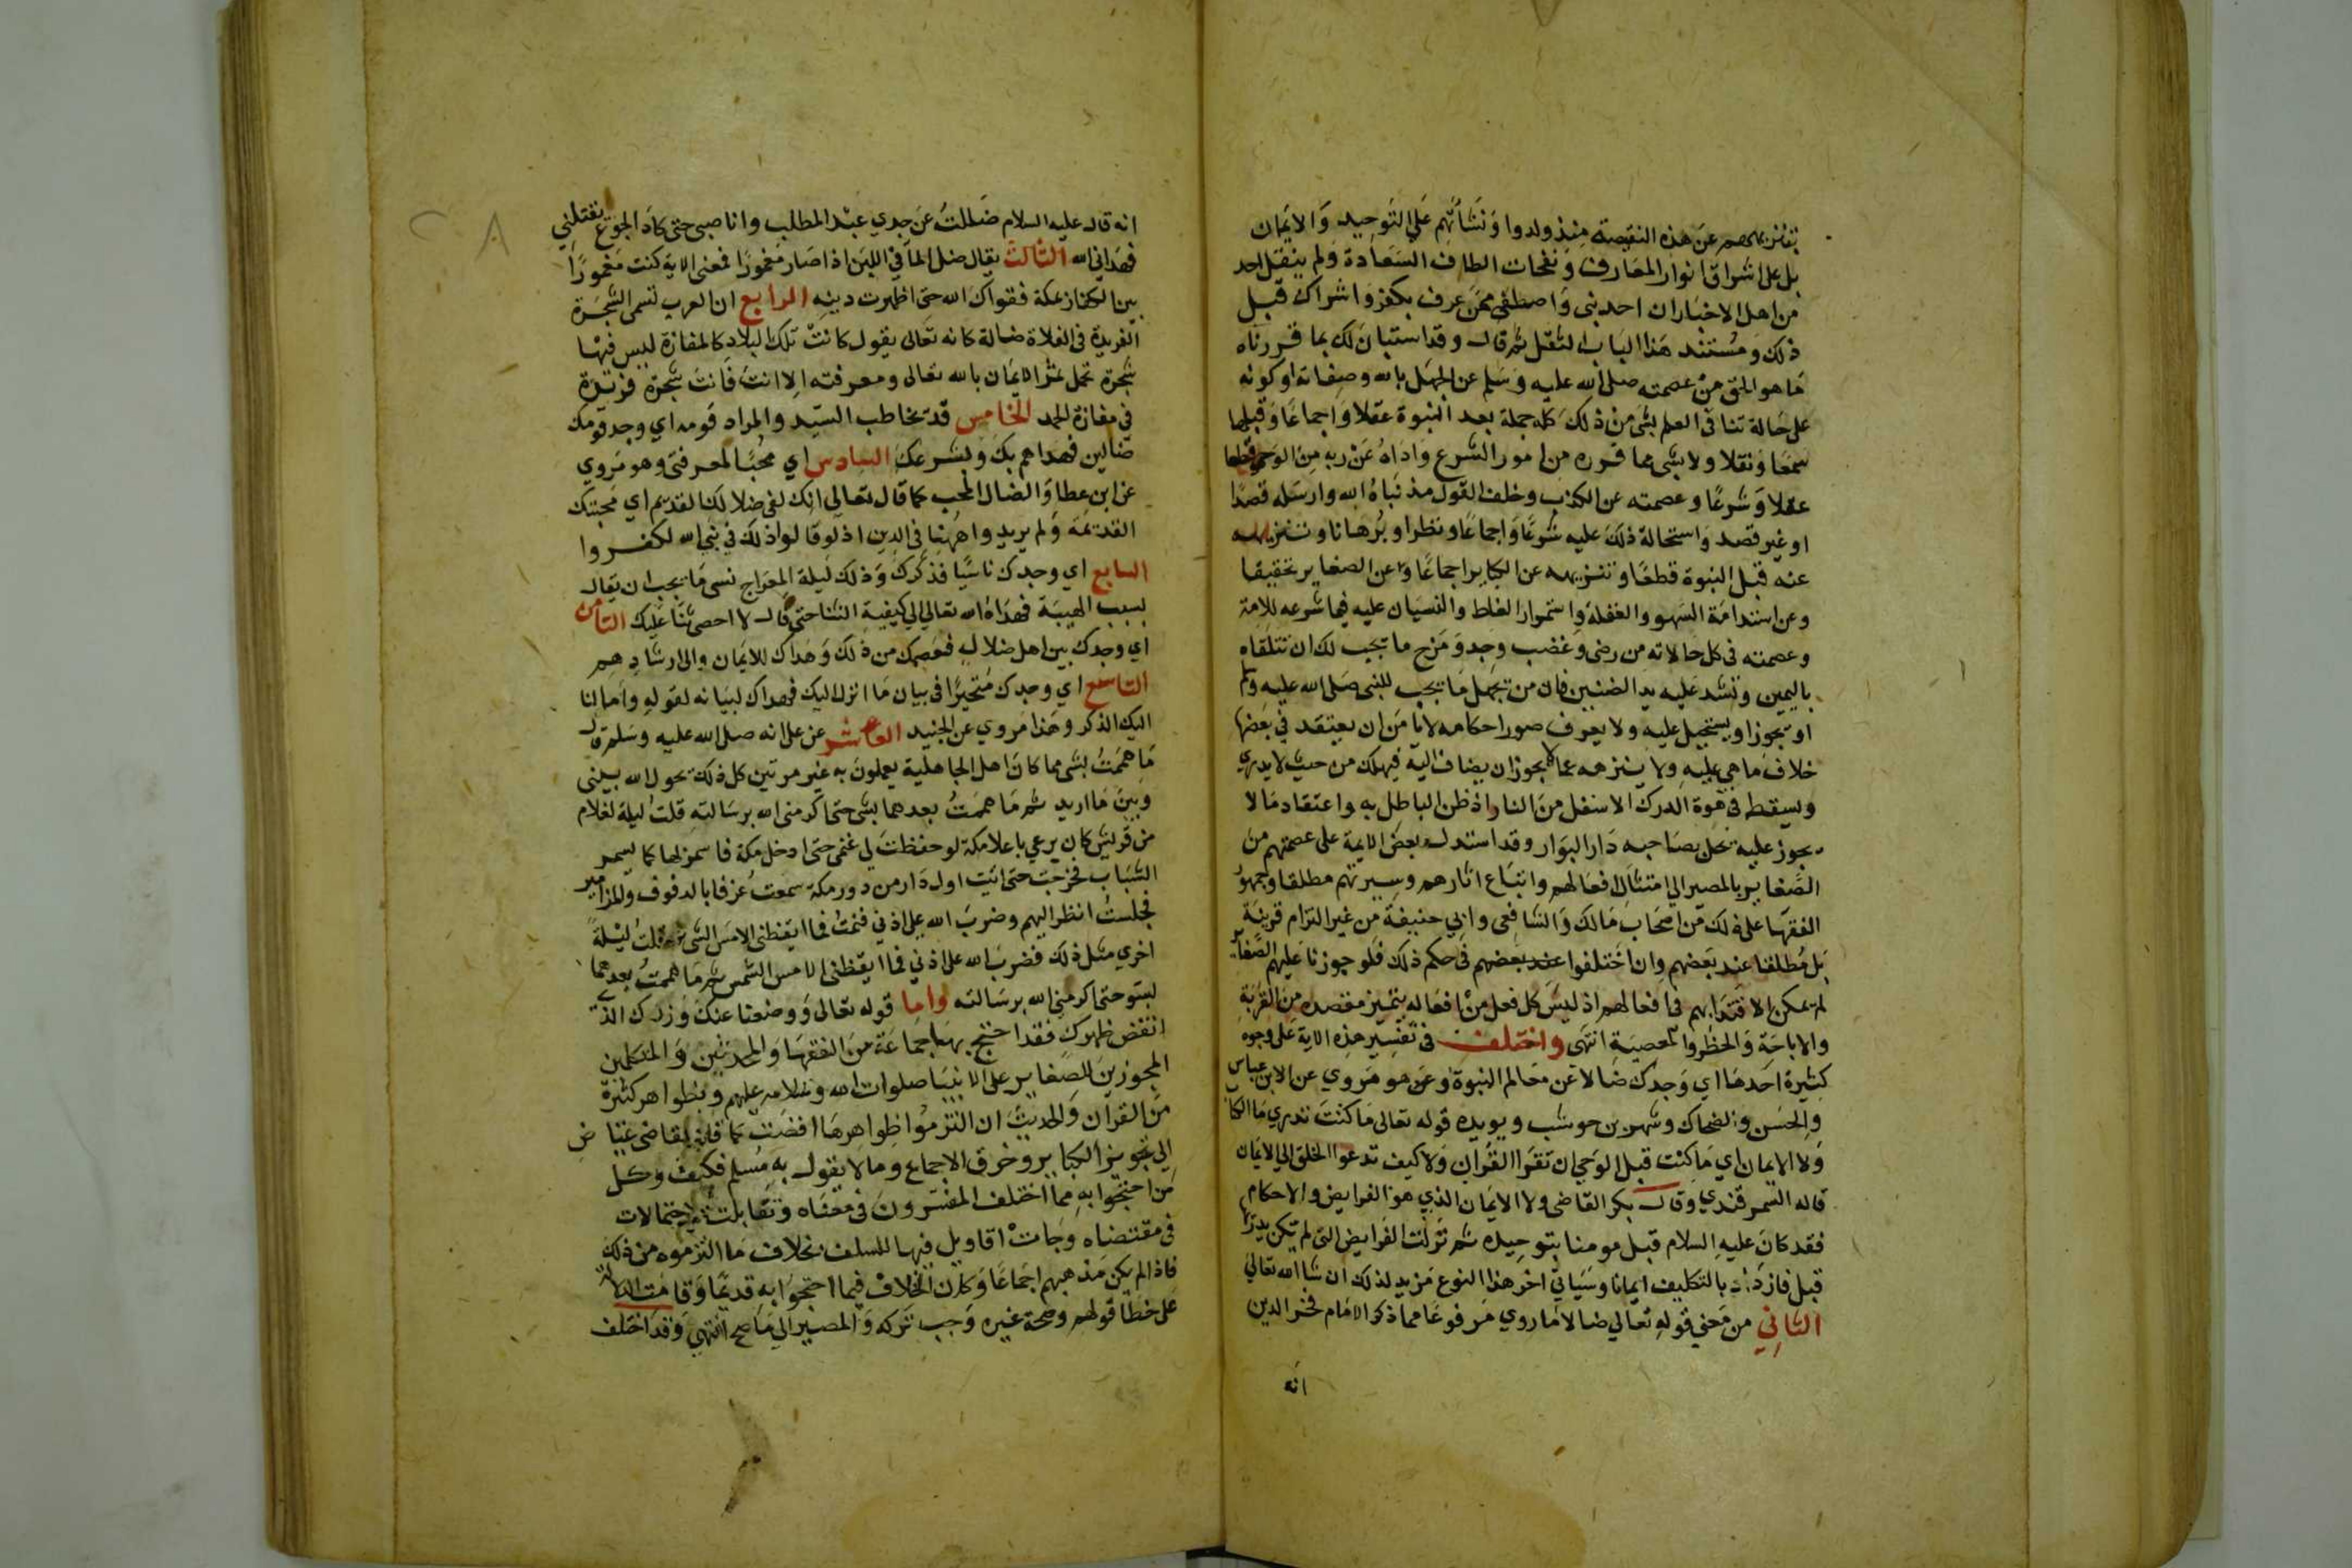 بتنزيههم عن هذه النقيصة منذ ولدوا ونشأتهم على التوحيد والايمان
بل على اشراق انوار المعارف ونفحات الطاف السعادة ولم ينقل احد
من اهل الاخبار ان احد نبى واصطفى ممن عرف بكفر واشراك قبل
ذلك ومستند هذا الباب النقل ثم قال وقد استبان لك بما قررناه
ما هو الحق من عصمته صلى الله عليه وسلم عن الجهل بالله وصفاته او كونه
على حالة تنافى العلم بشى من ذلك كله جملة بعد النبوة عقلا واجماعا وقبلها
سمعا ونقلا ولا بشى مما قرره من امور الشرع واداه عن ربه من الوحى قطعا
عقلا وشرعا وعصمته عن الكذب وخلف القول مذ نباه الله وارسله قصدا
او غير قصد واستحالة ذلك عليه شرعا واجماعا ونظرا وبرهانا وتنزيهه
عنه قبل النبوة قطعا وتنزيهه عن الكباير اجماعا وعن الصغاير تحقيقا
وعن استدامة السهو والغفلة واستمرار الغلط والنسيان عليه فيما شرعه للامة
وعصمته فى كل حالاته من رضى وغضب وجد ومزح ما يجب لك ان تتلقاه
باليمين وتشد عليه يد الضنين فان من يجهل ما يجب للنبى صلى الله عليه وسلم
او يجوز او يستحيل عليه ولا يعرف صور احكامه لا يامن ان يعتقد فى بعضها
خلاف ما هى عليه ولا ينزهه عما لا يجوز ان يضاف اليه فيهلك من حيث لا يدرى
ويسقط فى هوة الدرك الاسفل من النار اذ ظن الباطل به واعتقاد ما لا
يجوز عليه يحل بصاحبه دار البوار وقد استدل بعض الايمة على عصمتهم من
الصغاير بالمصير الى امتثال افعالهم واتباع اثارهم وسيرتهم مطلقا وجمهور
الفقها على ذلك من اصحاب مالك والشافعى وابى حنيفة من غير التزام قرينة
بل مطلقا عند بعضهم وان اختلفوا عند بعضهم فى حكم ذلك فلو جوزنا عليهم الصغاير
لم يمكن الاقتدا بهم فى افعالهم اذ ليس كل فعل من افعاله يتميز مقصده من القربة
والاباحة والحظر والمعصية انتهى واختلف فى تفسير هذه الاية على وجوه
كثيرة احدها اى وجدك ضالا عن معالم النبوة وهو مروى عن ابن عباس
والحسن والضحاك وشهر بن حوشب ويويده قوله تعالى ما كنت تدرى ما الكتاب
ولا الايمان اى ما كنت قبل الوحى ان تقرا القران ولا كيف تدعوا الخلق الى الايمان
قاله السمرقندى وقال بكر القاضى ولا الايمان الذى هو الفرايض والاحكام
فقد كان عليه السلام قبل مومنا بتوحيده ثم نزلت الفرايض التى لم يكن يدريها
قبل فازداد بالتكليف ايمانا وسياتى اخر هذا النوع مزيد لذلك ان شا الله تعالى
الثانى من معنى قوله تعالى ضالا ما روى مرفوعا مما ذكر الامام فخر الدين
انه
انه قال عليه السلام ضللت عن جدي عبد المطلب وانا صبى حتى كاد الجوع يقتلنى
فهدانى الله الثالث يقال ضل الما فى اللبن اذا صار مغمورا فمعنى الاية كنت مغمورا
بين الكفار بمكة فقواك الله حتى اظهرت دينه الرابع ان العرب تسمى الشجرة
الفريدة فى الفلاة ضالة كانه تعالى يقول كانت تلك البلاد كالمفازة ليس فيها
شجرة تحمل ثمر الايمان بالله تعالى ومعرفته الا انت فانت شجرة فريدة
فى مفازة الحمد الخامس قد يخاطب السيد والمراد قومه اي وجد قومك
ضالين فهداهم بك وبشرعك السادس اي محبا لمعرفتى وهو مروي
عن ابن عطا والضال المحب كما قال تعالى انك لفى ضلالك القديم اي محبتك
القديمة ولم يريدوا ههنا فى الدين اذ لو قالوا ذلك فى نبى الله لكفروا
السابع اي وجدك ناسيا فذكرك وذلك ليلة المعراج نسى ما يجب ان يقال
بسبب الهيبة فهداه الله تعالى الى كيفية الثنا حتى قال لا احصى ثنا عليك الثامن
اي وجدك بين اهل ضلال فعصمك من ذلك وهداك للايمان والى ارشادهم
التاسع اي وجدك متحيرا فى بيان ما انزل اليك فهداك لبيانه لقوله وانزلنا
اليك الذكر وهذا مروي عن الجنيد العاشر عن على انه صلى الله عليه وسلم قال
ما هممت بشى مما كان اهل الجاهلية يعملون به غير مرتين كل ذلك يحول الله بينى
وبين ما اريد ثم ما هممت بعدهما بشى حتى اكرمنى الله برسالته قلت ليلة لغلام
من قريش كان يرعي باعلا مكة لو حفظت لى غنمى حتى ادخل مكة فاسمر بها كما يسمر
الشباب فخرجت حتى اتيت اول دار من دور مكة سمعت عزفا بالدفوف والمزامير
فجلست انظر اليهم وضرب الله على اذني فنمت فما ايقظنى الا مس الشمس ثم قلت ليلة
اخري مثل ذلك فضرب الله على اذني فما ايقظنى الا مس الشمس ثم ما هممت بعدهما
بسو حتى اكرمنى الله برسالته واما قوله تعالى ووضعنا عنك وزرك الذي
انقض ظهرك فقد احتج بها جماعة من الفقها والمحدثين والمتكلمين
المجوزين للصغاير على الانبيا صلوات الله وسلامه عليهم وبظواهر كثيرة
من القران والحديث ان التزموا ظواهرها افضت كما قال القاضى عياض
الى تجويز الكباير وخرق الاجماع وما لا يقول به مسلم فكيف وكل
من احتجوا به مما اختلف المفسرون فى معناه وتقابلت الاحتمالات
فى مقتضاه وجات اقاويل فيها للسلف بخلاف ما التزموه من ذلك
فاذا لم يكن مذهبهم اجماعا وكان الخلاف فيما احتجوا به قديما وقامت الدلالة
على خطا قولهم وصحة غيره وجب تركه والمصير الى ما صح انتهى وقد اختلف